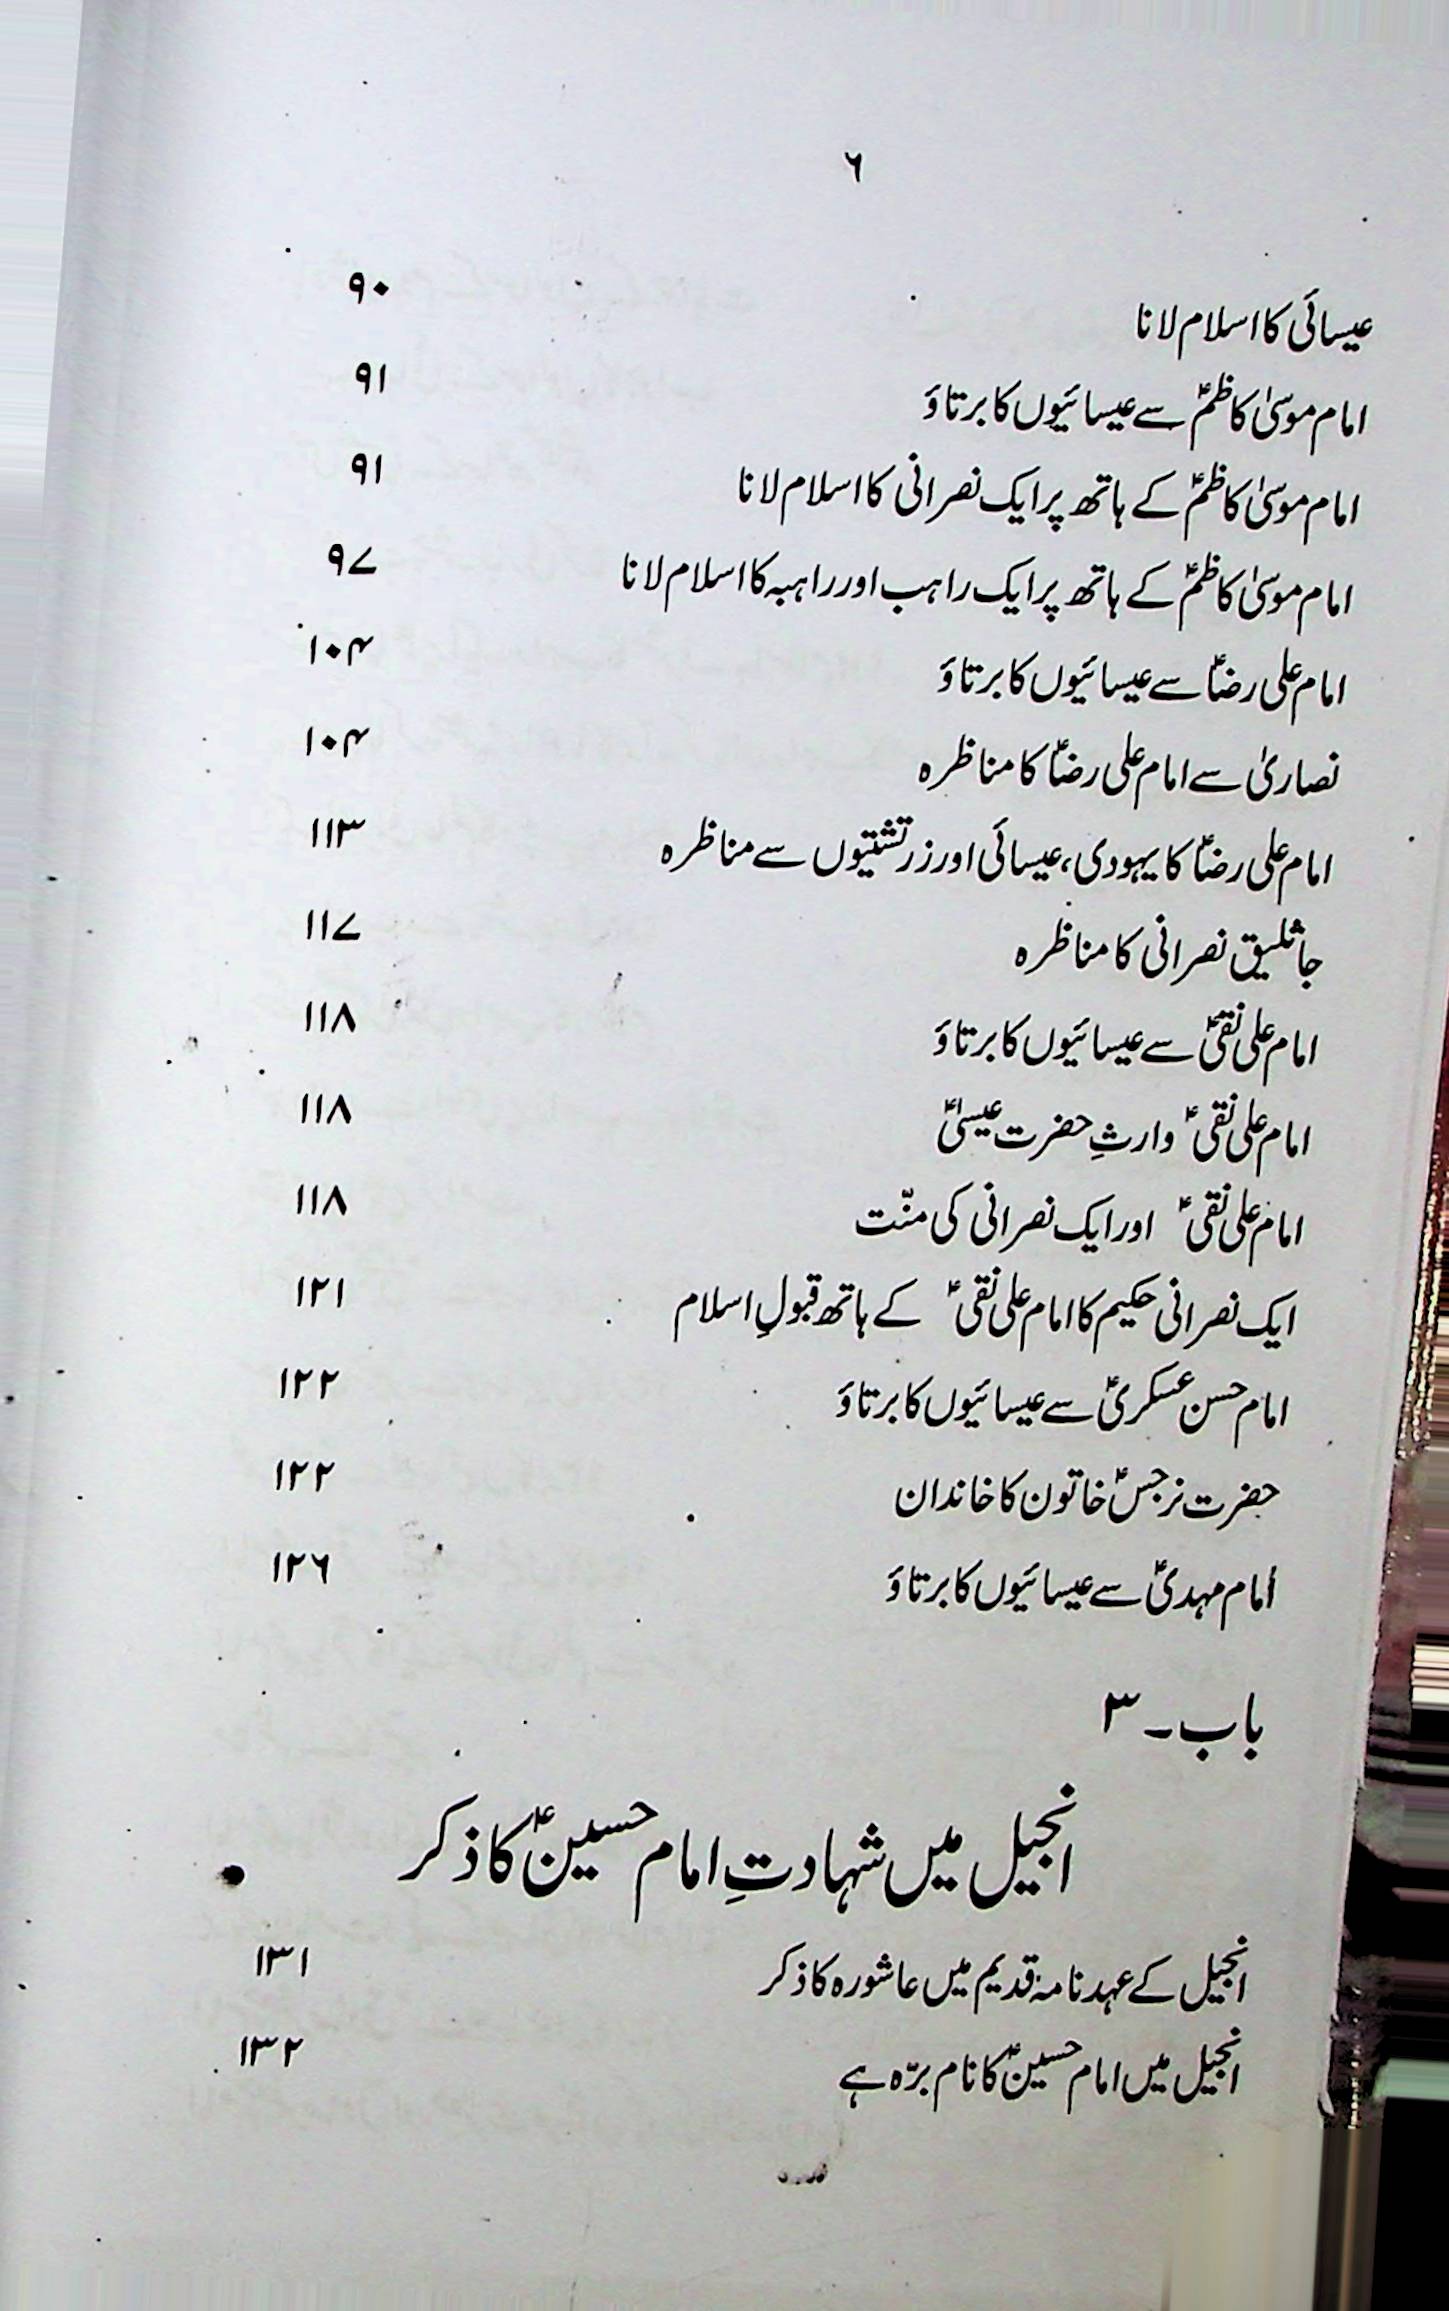 ۶
عیسائی کا اسلام لانا ۹۰
امام موسیٰ کاظمؑ سے عیسائیوں کا برتاؤ ۹۱
امام موسیٰ کاظمؑ کے ہاتھ پر ایک نصرانی کا اسلام لانا ۹۱
امام موسیٰ کاظمؑ کے ہاتھ پر ایک راہب اور راہبہ کا اسلام لانا ۹۷
امام علی رضاؑ سے عیسائیوں کا برتاؤ ۱۰۴
نصاریٰ سے امام علی رضاؑ کا مناظرہ ۱۰۴
امام علی رضاؑ کا یہودی، عیسائی اور زرتشتیوں سے مناظرہ ۱۱۳
جاثلیق نصرانی کا مناظرہ ۱۱۷
امام علی نقیؑ سے عیسائیوں کا برتاؤ ۱۱۸
امام علی نقیؑ وارثِ حضرت عیسیٰؑ ۱۱۸
امام علی نقیؑ اور ایک نصرانی کی منّت ۱۱۸
ایک نصرانی حکیم کا امام علی نقیؑ کے ہاتھ قبولِ اسلام ۱۲۱
امام حسن عسکریؑ سے عیسائیوں کا برتاؤ ۱۲۲
حضرت نرجسؑ خاتون کا خاندان ۱۲۲
امام مہدیؑ سے عیسائیوں کا برتاؤ ۱۲۶
باب ۔ ۳
انجیل میں شہادتِ امام حسینؑ کا ذکر
انجیل کے عہد نامۂ قدیم میں عاشورہ کا ذکر ۱۳۱
انجیل میں امام حسینؑ کا نام برّہ ہے ۱۳۲